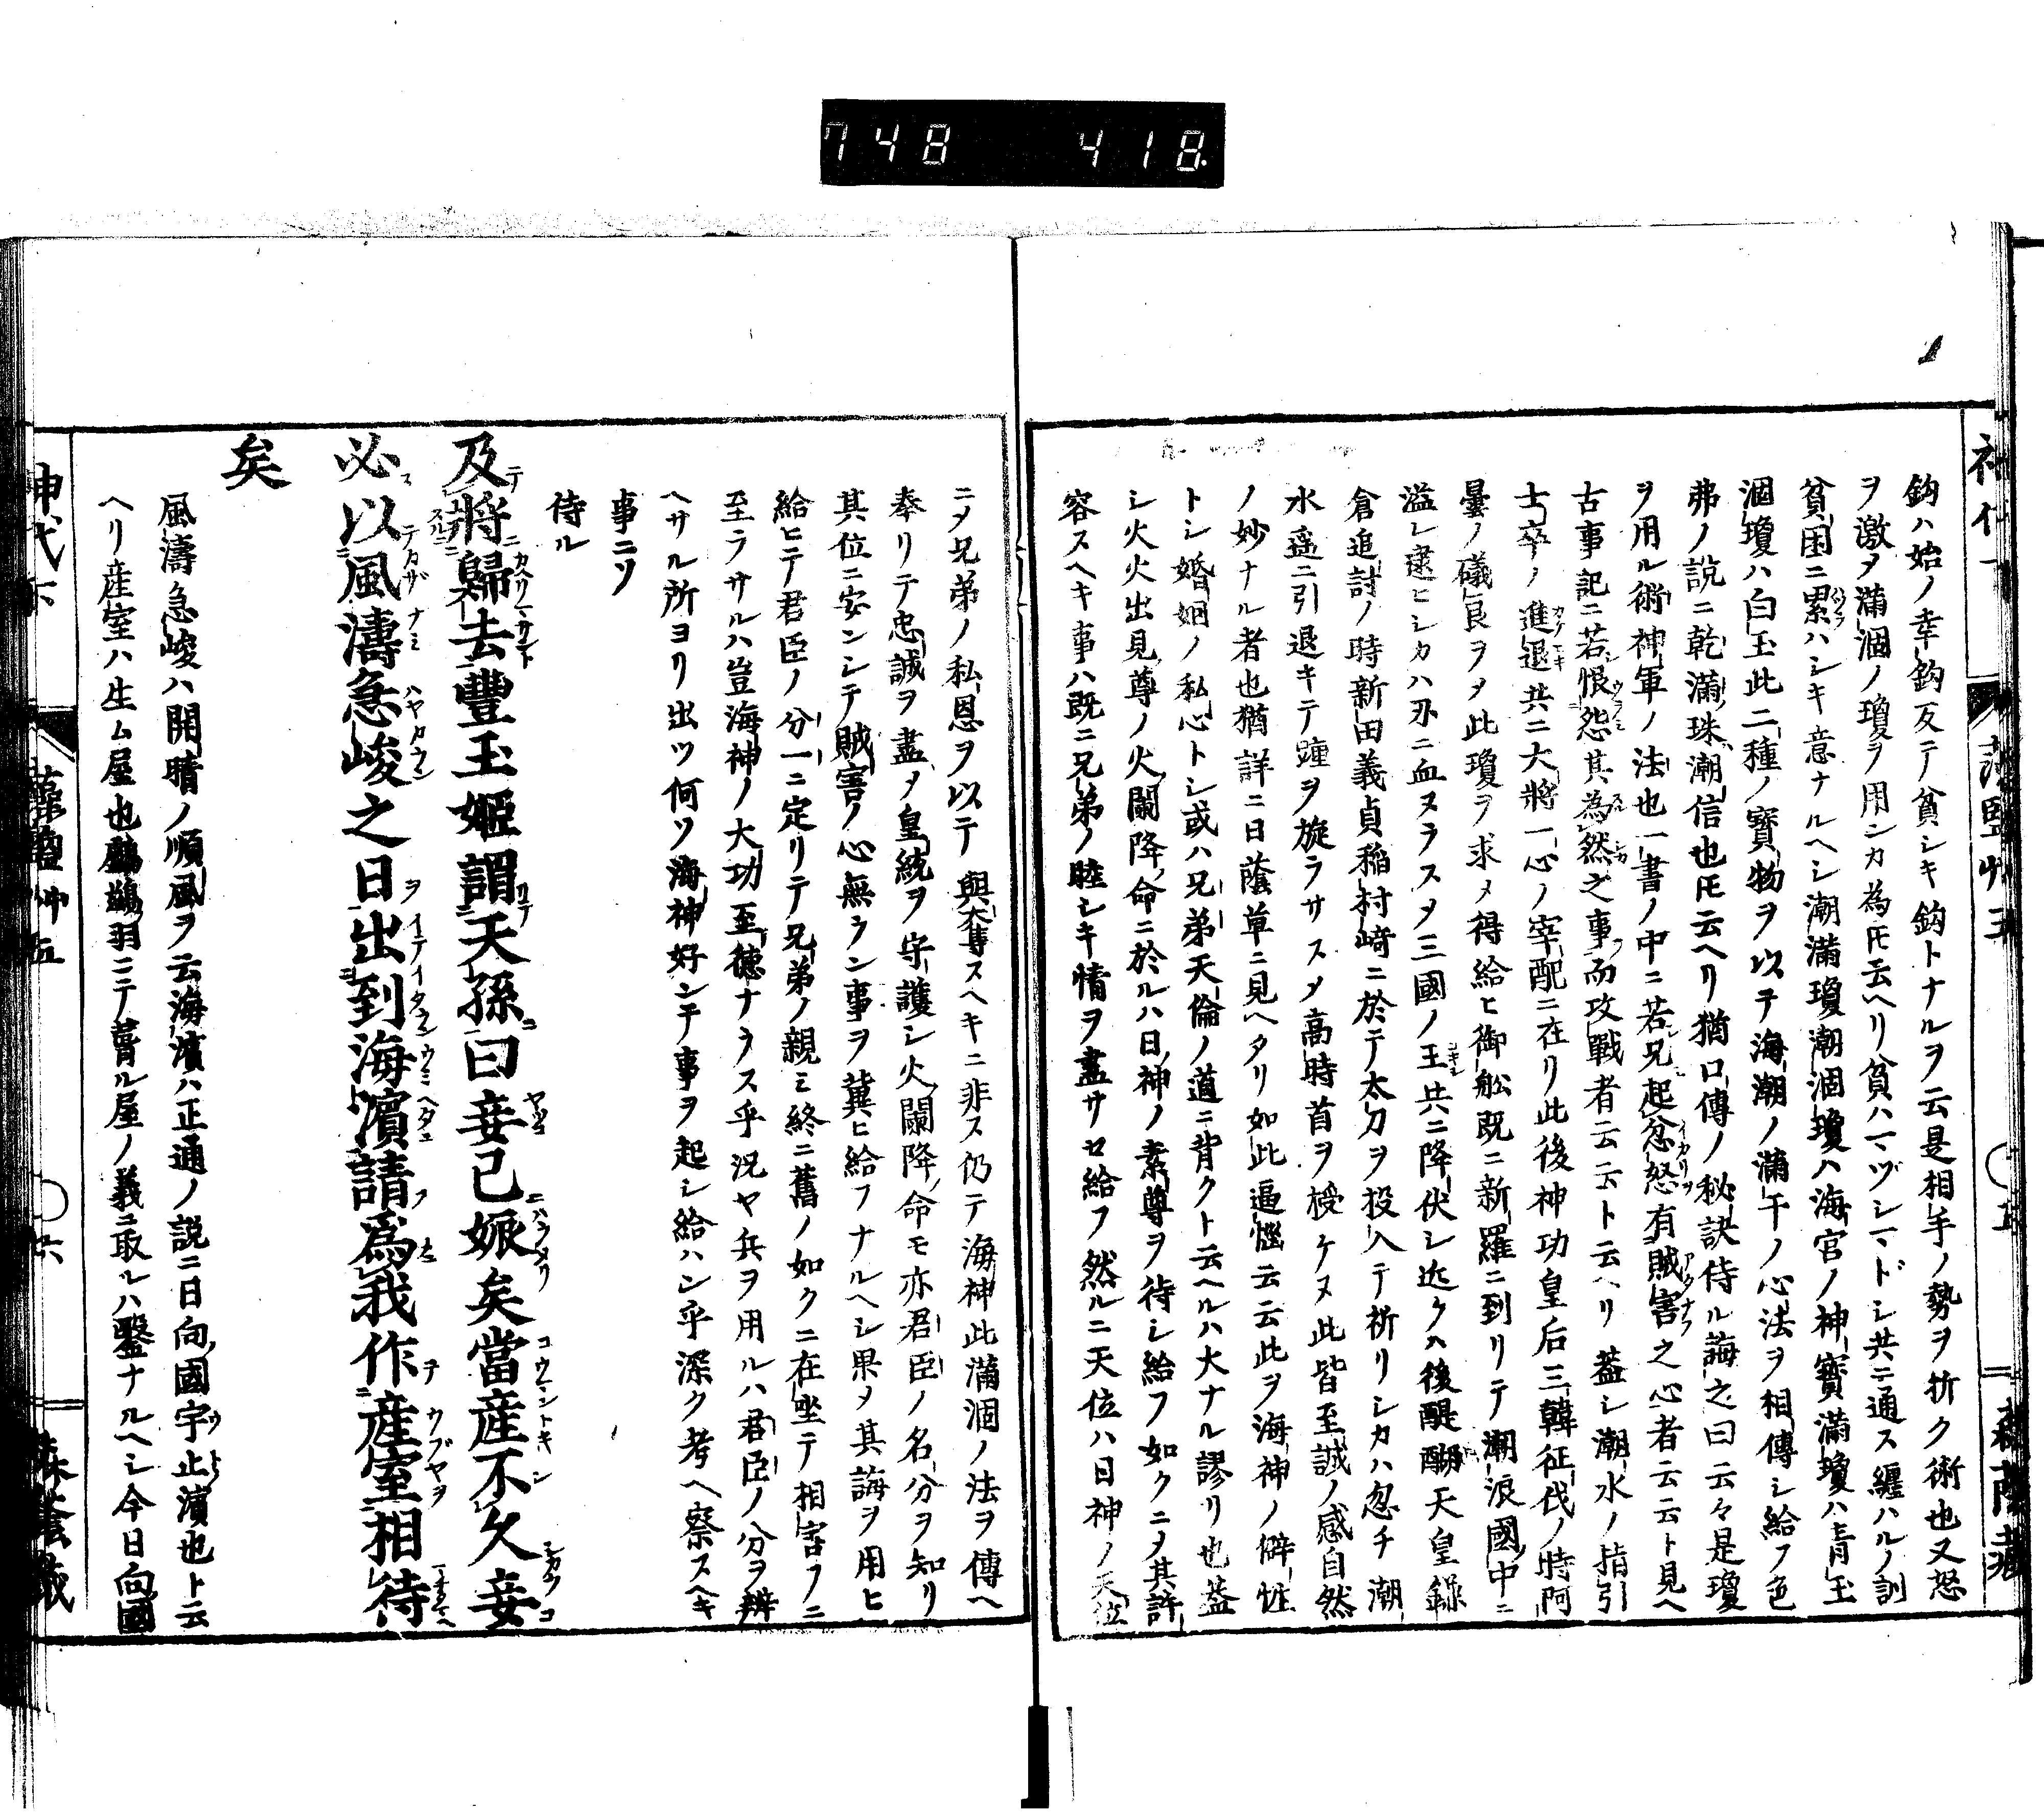 748 418.
鈎ハ始ノ幸鈎反テ貧シキ鈎トナルヲ云是相手ノ勢ヲ折ク術也又怒
ヲ激メ滿涸ノ瓊ヲ用シカ為𪜈云ヘリ貧ハマヅシマドシ共ニ通ス纏ハルノ訓
貧困ニ累ハシキ意ナルヘシ潮滿瓊潮涸瓊ハ海宮ノ神寶滿瓊ハ青玉
涸瓊ハ白玉此二種ノ寶物ヲ以テ海潮ノ滿干ノ心法ヲ相傳シ給フ色
弗ノ說ニ乾滿珠潮信也𪜈云ヘリ猶口傳ノ秘訣侍ル誨之曰云々是瓊
ヲ用ル術神軍ノ法也一書ノ中ニ若兄起忿怒有賊害之心者云云ト見ヘ
古事記ニ若恨怨其為然之事而攻戰者云云ト云ヘリ蓋シ潮水ノ指引
士卒ノ進退共ニ大將一心ノ宰配ニ在リ此後神功皇后三韓征伐ノ時阿
曇ノ礒良ヲメ此瓊ヲ求メ得給ヒ御舩既ニ新羅ニ到リテ潮浪國中ニ
溢レ逮ヒシカハ刃ニ血ヌラスメ三國ノ王共ニ降伏シ近クハ後醍醐天皇鎌
倉追討ノ時新田義貞稲村﨑ニ於テ太刀ヲ投入テ祈リシカハ忽チ潮
水遥ニ引退キテ踵ヲ旋ラサスメ高時首ヲ授ケヌ此皆至誠ノ感自然
ノ妙ナル者也猶詳ニ日蔭草ニ見ヘタリ如此逼惱云云此ヲ海神ノ僻性
トシ婚姻ノ私心トシ或ハ兄弟天倫ノ道ニ背クト云ヘルハ大ナル謬リ也蓋
シ火火出見尊ノ火闌降命ニ於ルハ日神ノ素尊ヲ待シ給フ如クニメ其許
容スヘキ事ハ既ニ兄弟ノ睦シキ情ヲ盡サセ給フ然ルニ天位ハ日神ノ天位
ニメ兄弟ノ私恩ヲ以テ與奪スヘキニ非ス仍テ海神此滿涸ノ法ヲ傳ヘ
奉リテ忠誠ヲ盡メ皇統ヲ守護シ火闌降命モ亦君臣ノ名分ヲ知リ
其位ニ安ンシテ賊害ノ心無ラン事ヲ冀ヒ給フナルヘシ果メ其誨ヲ用ヒ
給ヒテ君臣ノ分一ニ定リテ兄弟ノ親ミ終ニ舊ノ如クニ在坐テ相害フニ
至ラサルハ豈海神ノ大功至德ナラス乎況ヤ兵ヲ用ルハ君臣ノ分ヲ辨
ヘサル所ヨリ出ツ何ソ海神好ンテ事ヲ起シ給ハン乎深ク考ヘ察スヘキ
事ニソ
侍ル
及將歸去豐玉姬謂天孫曰妾已娠矣當産不久妾
必以風濤急峻之日出到海濱請為我作産室相待
矣
風濤急峻ハ開晴ノ順風ヲ云海濱ハ正通ノ説ニ日向國宇止濱也ト云
ヘリ産室ハ生ム屋也鸕鷀羽ニテ葺ル屋ノ義ニ取ルハ鑿ナルヘシ今日向國
神代下 藻鹽艸五 ○六 森蔭藏